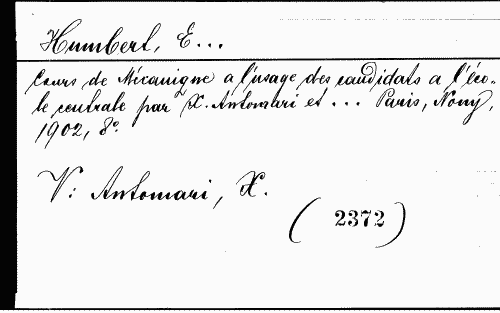 Humbert, E...
Cours de Mécanique a l'usage des candidats a l'éco-
le centrale par X. Antomari et ... Paris, Nony,
1902, 8º.
V: Antomari, X.
(2372)